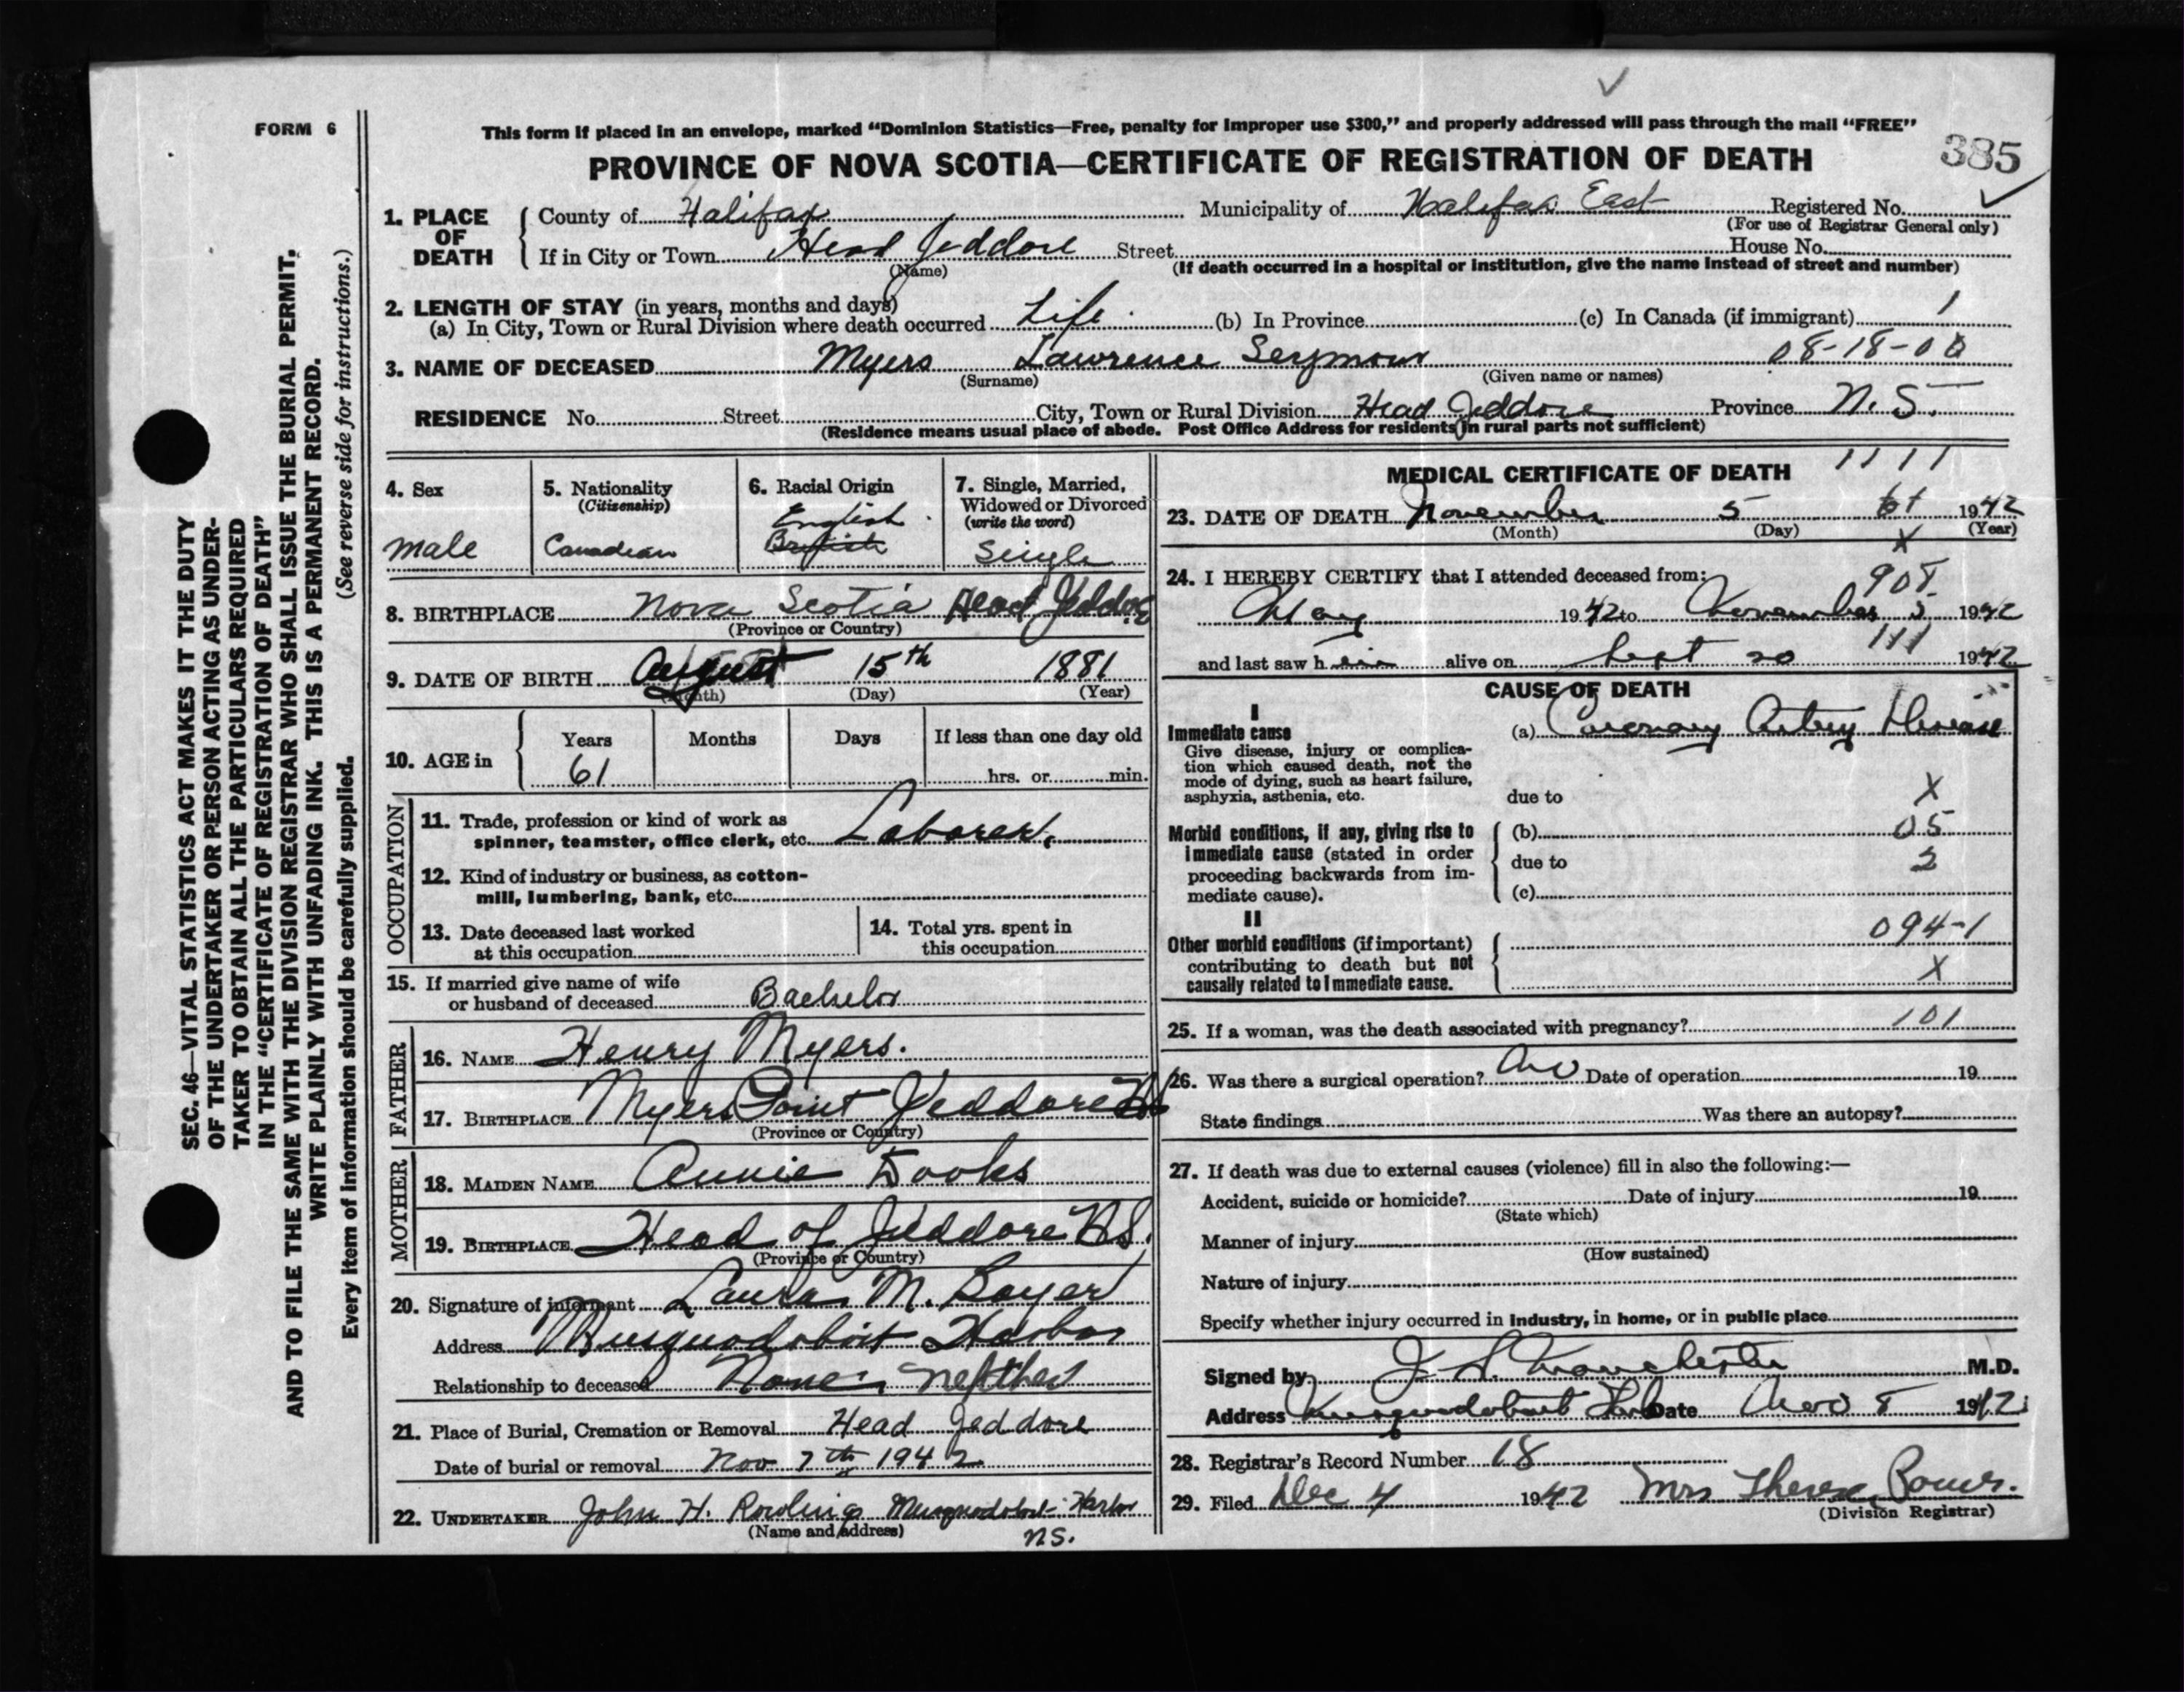 FORM 6
This form if placed in an envelope, marked “Dominion Statistics—Free, penalty for improper use $300,” and properly addressed will pass through the mail “FREE”
385
PROVINCE OF NOVA SCOTIA—CERTIFICATE OF REGISTRATION OF DEATH
SEC. 46—VITAL STATISTICS ACT MAKES IT THE DUTY
OF THE UNDERTAKER OR PERSON ACTING AS UNDER-
TAKER TO OBTAIN ALL THE PARTICULARS REQUIRED
IN THE “CERTIFICATE OF REGISTRATION OF DEATH”
AND TO FILE THE SAME WITH THE DIVISION REGISTRAR WHO SHALL ISSUE THE BURIAL PERMIT.
WRITE PLAINLY WITH UNFADING INK. THIS IS A PERMANENT RECORD.
Every item of information should be carefully supplied. (See reverse side for instructions.)
1. PLACE OF DEATH County of Halifax Municipality of Halifax East Registered No.
(For use of Registrar General only)
If in City or Town Head Jeddore Street House No.
(Name) (If death occurred in a hospital or institution, give the name instead of street and number)
2. LENGTH OF STAY (in years, months and days)
(a) In City, Town or Rural Division where death occurred Life (b) In Province (c) In Canada (if immigrant) 1
3. NAME OF DECEASED Myers Lawrence Seymour 08-18-0
(Surname) (Given name or names)
RESIDENCE No. Street City, Town or Rural Division Head Jeddore Province N.S.
(Residence means usual place of abode. Post Office Address for residents in rural parts not sufficient)
4. Sex
male
5. Nationality
(Citizenship)
Canadian
6. Racial Origin
English
British
7. Single, Married,
Widowed or Divorced
(write the word)
Single
8. BIRTHPLACE Nova Scotia Head Jeddore
(Province or Country)
9. DATE OF BIRTH August 15th 1881
(Month) (Day) (Year)
10. AGE in Years Months Days If less than one day old
61 hrs. or min.
OCCUPATION
11. Trade, profession or kind of work as
spinner, teamster, office clerk, etc. Laborer.
12. Kind of industry or business, as cotton-
mill, lumbering, bank, etc.
13. Date deceased last worked
at this occupation
14. Total yrs. spent in
this occupation
15. If married give name of wife
or husband of deceased Bachelor
FATHER
16. NAME Henry Myers.
17. BIRTHPLACE Myers Point Jeddore NS
(Province or Country)
MOTHER
18. MAIDEN NAME Annie Dooks
19. BIRTHPLACE Head of Jeddore NS.
(Province or Country)
20. Signature of informant Laura M. Bayer
Address Musquodoboit Harbor
Relationship to deceased None
21. Place of Burial, Cremation or Removal Head Jeddore
Date of burial or removal Nov 7th 1942
22. UNDERTAKER John H. Rowlings Musquodoboit Harbor
(Name and address) NS.
MEDICAL CERTIFICATE OF DEATH 1111
23. DATE OF DEATH November 5 61 1942
(Month) (Day) (Year)
X
24. I HEREBY CERTIFY that I attended deceased from:
908
May 1942 to November 5 1942
111
and last saw him alive on Sept 20 1942
CAUSE OF DEATH
I
Immediate cause
Give disease, injury or complica-
tion which caused death, not the
mode of dying, such as heart failure,
asphyxia, asthenia, etc.
(a) Coronary Artery Disease
due to X
Morbid conditions, if any, giving rise to
immediate cause (stated in order
proceeding backwards from im-
mediate cause).
(b) 05
due to 2
(c)
II
Other morbid conditions (if important)
contributing to death but not
causally related to immediate cause.
094-1
X
25. If a woman, was the death associated with pregnancy? 101
26. Was there a surgical operation? No Date of operation 19
State findings Was there an autopsy?
27. If death was due to external causes (violence) fill in also the following:—
Accident, suicide or homicide? Date of injury 19
(State which)
Manner of injury
(How sustained)
Nature of injury
Specify whether injury occurred in industry, in home, or in public place
Signed by Manchester M.D.
Address Musquodoboit Harb Date Nov 8 1942
28. Registrar's Record Number 18
29. Filed Dec 4 1942 Mrs
(Division Registrar)